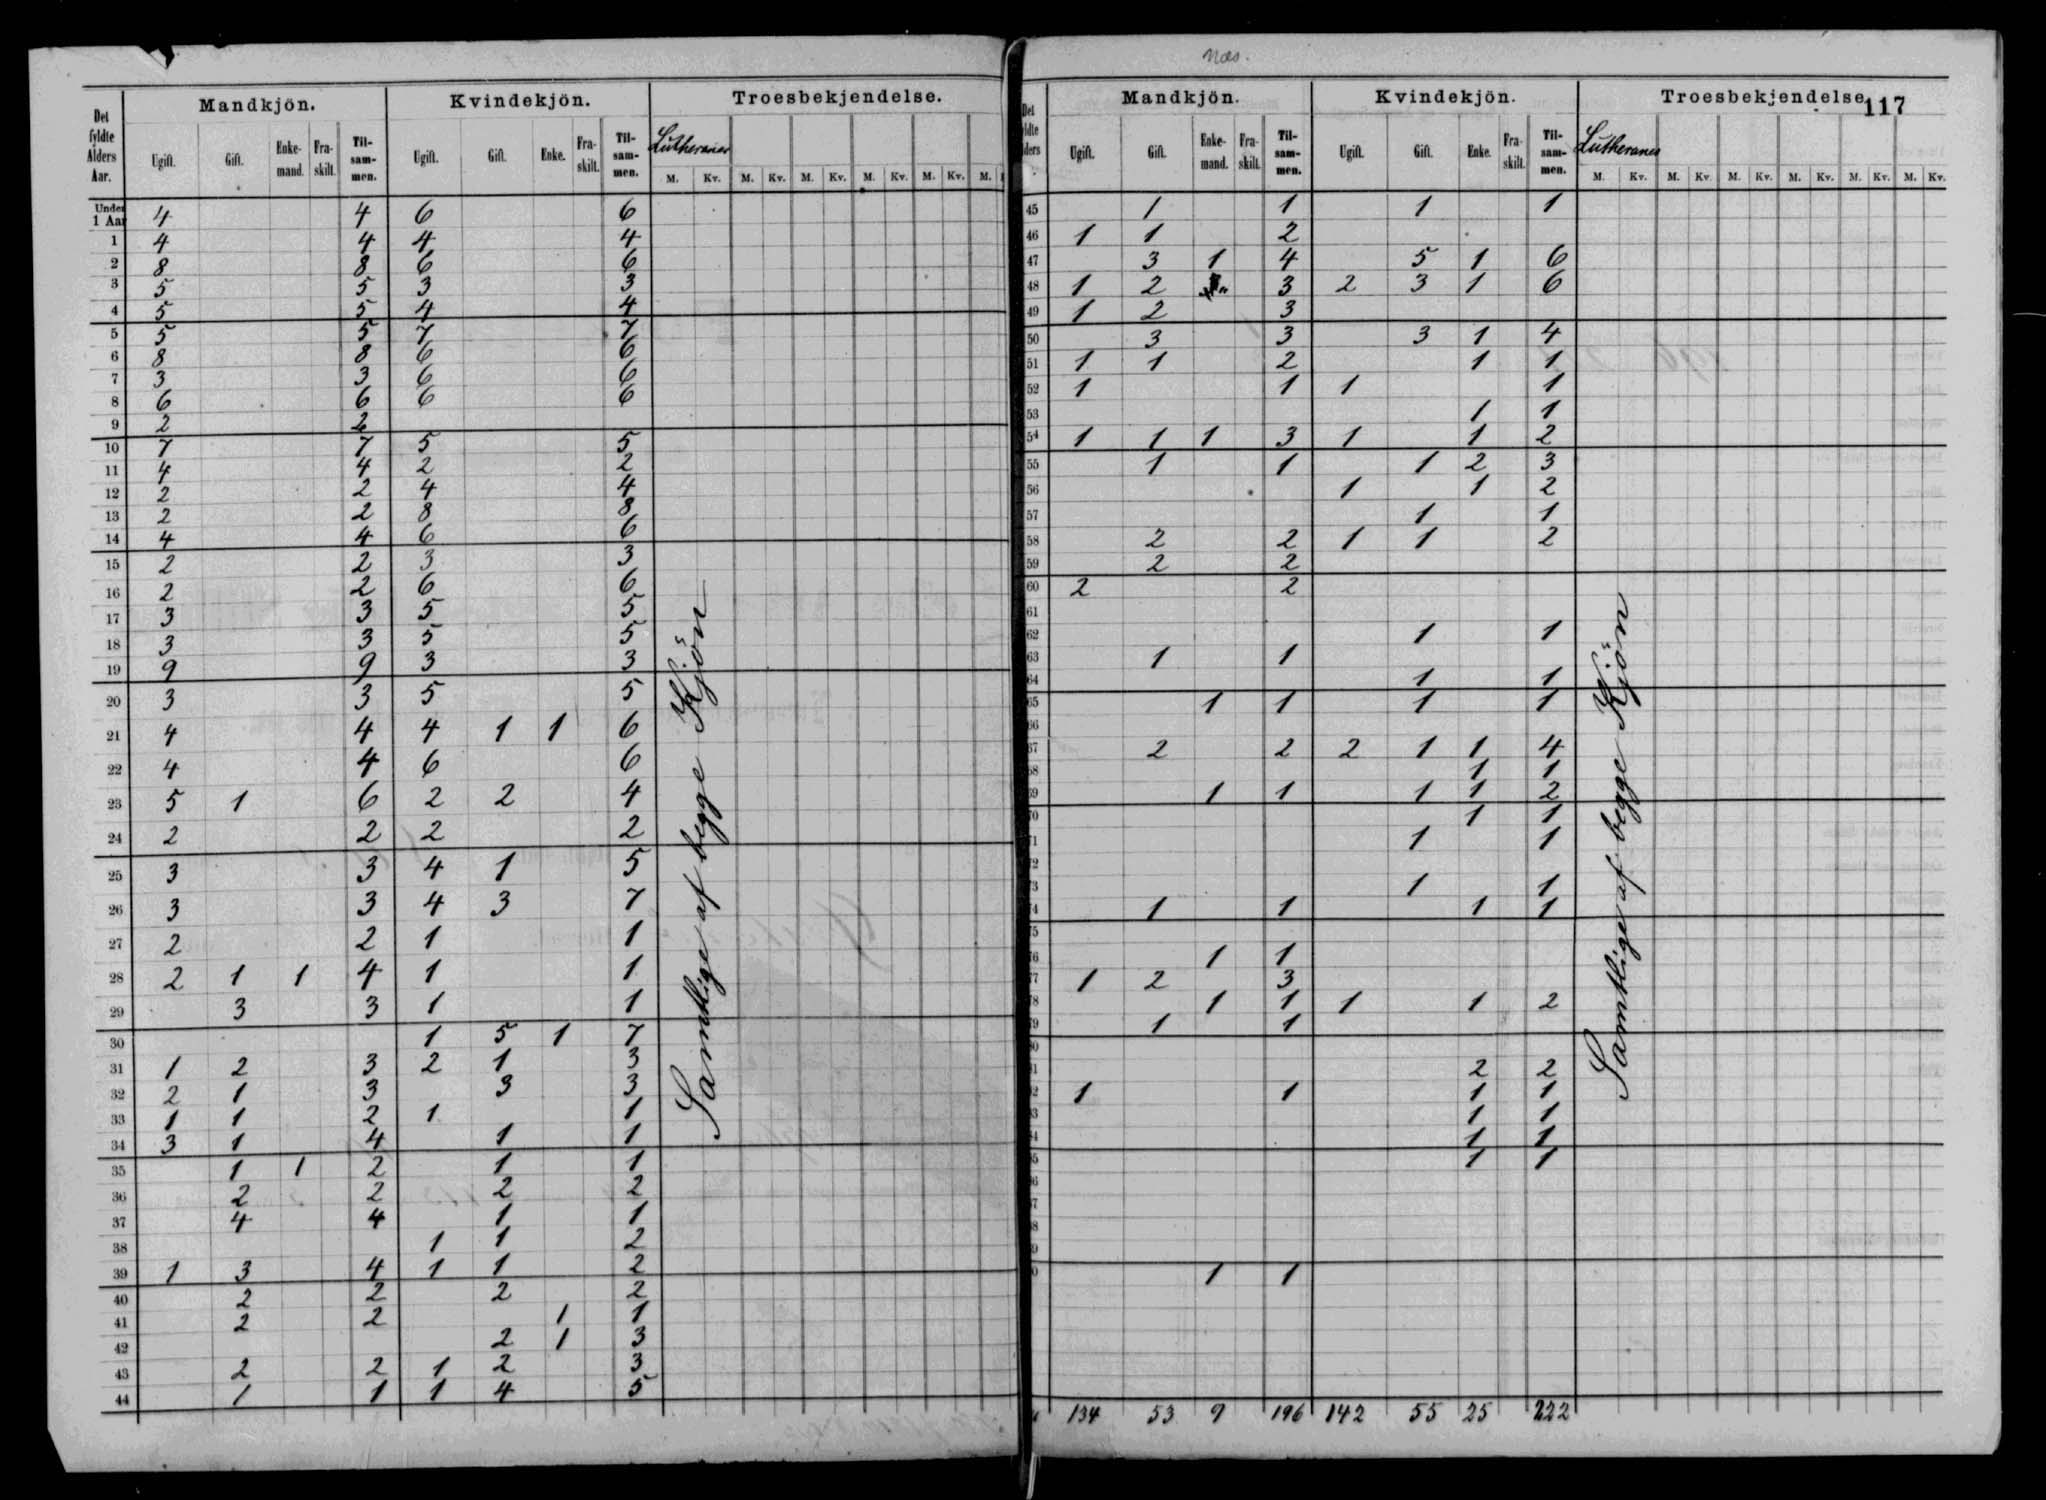 Mandkjön. Kvindekjön. Troesbekjendelse.
Det fyldte Alders Aar. Ugift. Gift. Enkemand. Fraskilt. Tilsammen. Ugift. Gift. Enke. Fraskilt. Tilsammen. Lutheraner
M. Kv. M. Kv. M. Kv. M. Kv. M. Kv. M.
Under 1 Aar 4 4 6 6
1 4 4 4 4
2 8 8 6 6
3 5 5 3 3
4 5 5 4 4
5 5 5 7 7
6 8 8 6 6
7 3 3 6 6
8 6 6 6 6
9 2 2
10 7 7 5 5
11 4 4 2 2
12 2 2 4 4
13 2 2 8 8
14 4 4 6 6
15 2 2 3 3
16 2 2 6 6
17 3 3 5 5
18 3 3 5 5
19 9 9 3 3
20 3 3 5 5
21 4 4 4 1 1 6
22 4 4 6 6
23 5 1 6 2 2 4
24 2 2 2 2
25 3 3 4 1 5
26 3 3 4 3 7
27 2 2 1 1
28 2 1 1 4 1 1
29 3 3 1 1
30 1 5 1 7
31 1 2 3 2 1 3
32 2 1 3 3 3
33 1 1 2 1 1
34 3 1 4 1 1
35 1 1 2 1 1
36 2 2 2 2
37 4 4 1 1
38 1 1 2
39 1 3 4 1 1 2
40 2 2 2 2
41 2 2 1 1
42 2 1 3
43 2 2 1 2 3
44 1 1 1 4 5
Samtlige af begge Kjön
Næs.
Mandkjön. Kvindekjön. Troesbekjendelse 117
Det ldte lders Ugift. Gift. Enkemand. Fraskilt. Tilsammen. Ugift. Gift. Enke. Fraskilt. Tilsammen. Lutheraner
M. Kv. M. Kv. M. Kv. M. Kv. M. Kv. M. Kv.
45 1 1 1 1
46 1 1 2
47 3 1 4 5 1 6
48 1 2 3 2 3 1 6
49 1 2 3
50 3 3 3 1 4
51 1 1 2 1 1
52 1 1 1 1
53 1 1
54 1 1 1 3 1 1 2
55 1 1 1 2 3
56 1 1 2
57 1 1
58 2 2 1 1 2
59 2 2
60 2 2
61
62 1 1
63 1 1
64 1 1
65 1 1 1 1
66
67 2 2 2 1 1 4
68 1 1
69 1 1 1 1 2
70 1 1
71 1 1
72
73 1 1
74 1 1 1 1
75
76 1 1
77 1 2 3
78 1 1 1 1 2
79 1 1
0
1 2 2
2 1 1 1 1
3 1 1
4 1 1
5 1 1
6
7
8
9
0 1 1
134 53 9 196 142 55 25 222
Samtlige af begge Kjön